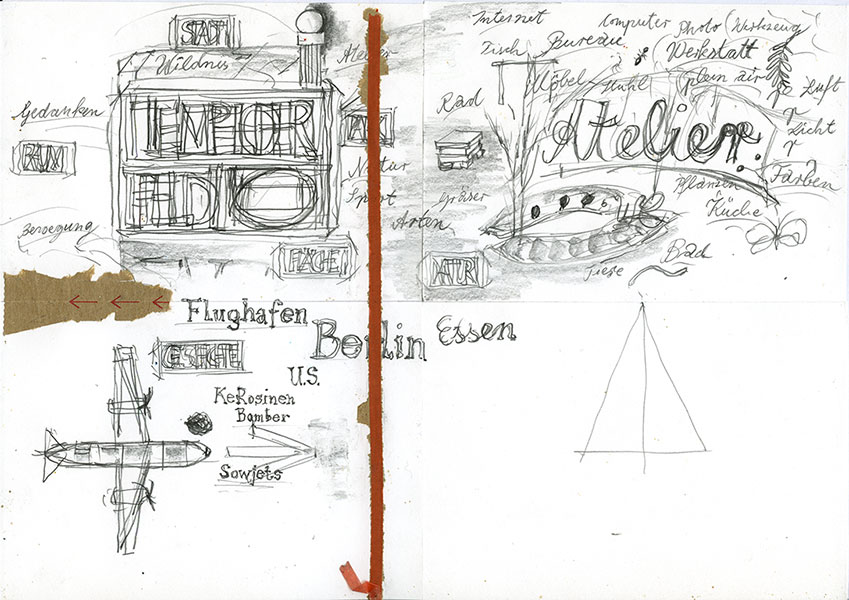 STADT
Wildnis
Atelier
Gedanken
RAUM
Natur
Sport
Arten
Bewegung
FLÄCHE
Internet
Computer
Photo (Werkzeug)
Tisch
Bureau
Werkstatt
Möbel
Stuhl
plein air
Rad
Luft
Atelier.
Licht
Farben
Pflanzen
Gräser
Küche
NATUR
Tiere
Bad
Flughafen
Berlin
Essen
U.S.
KeRosinen
Bomber
Sowjets